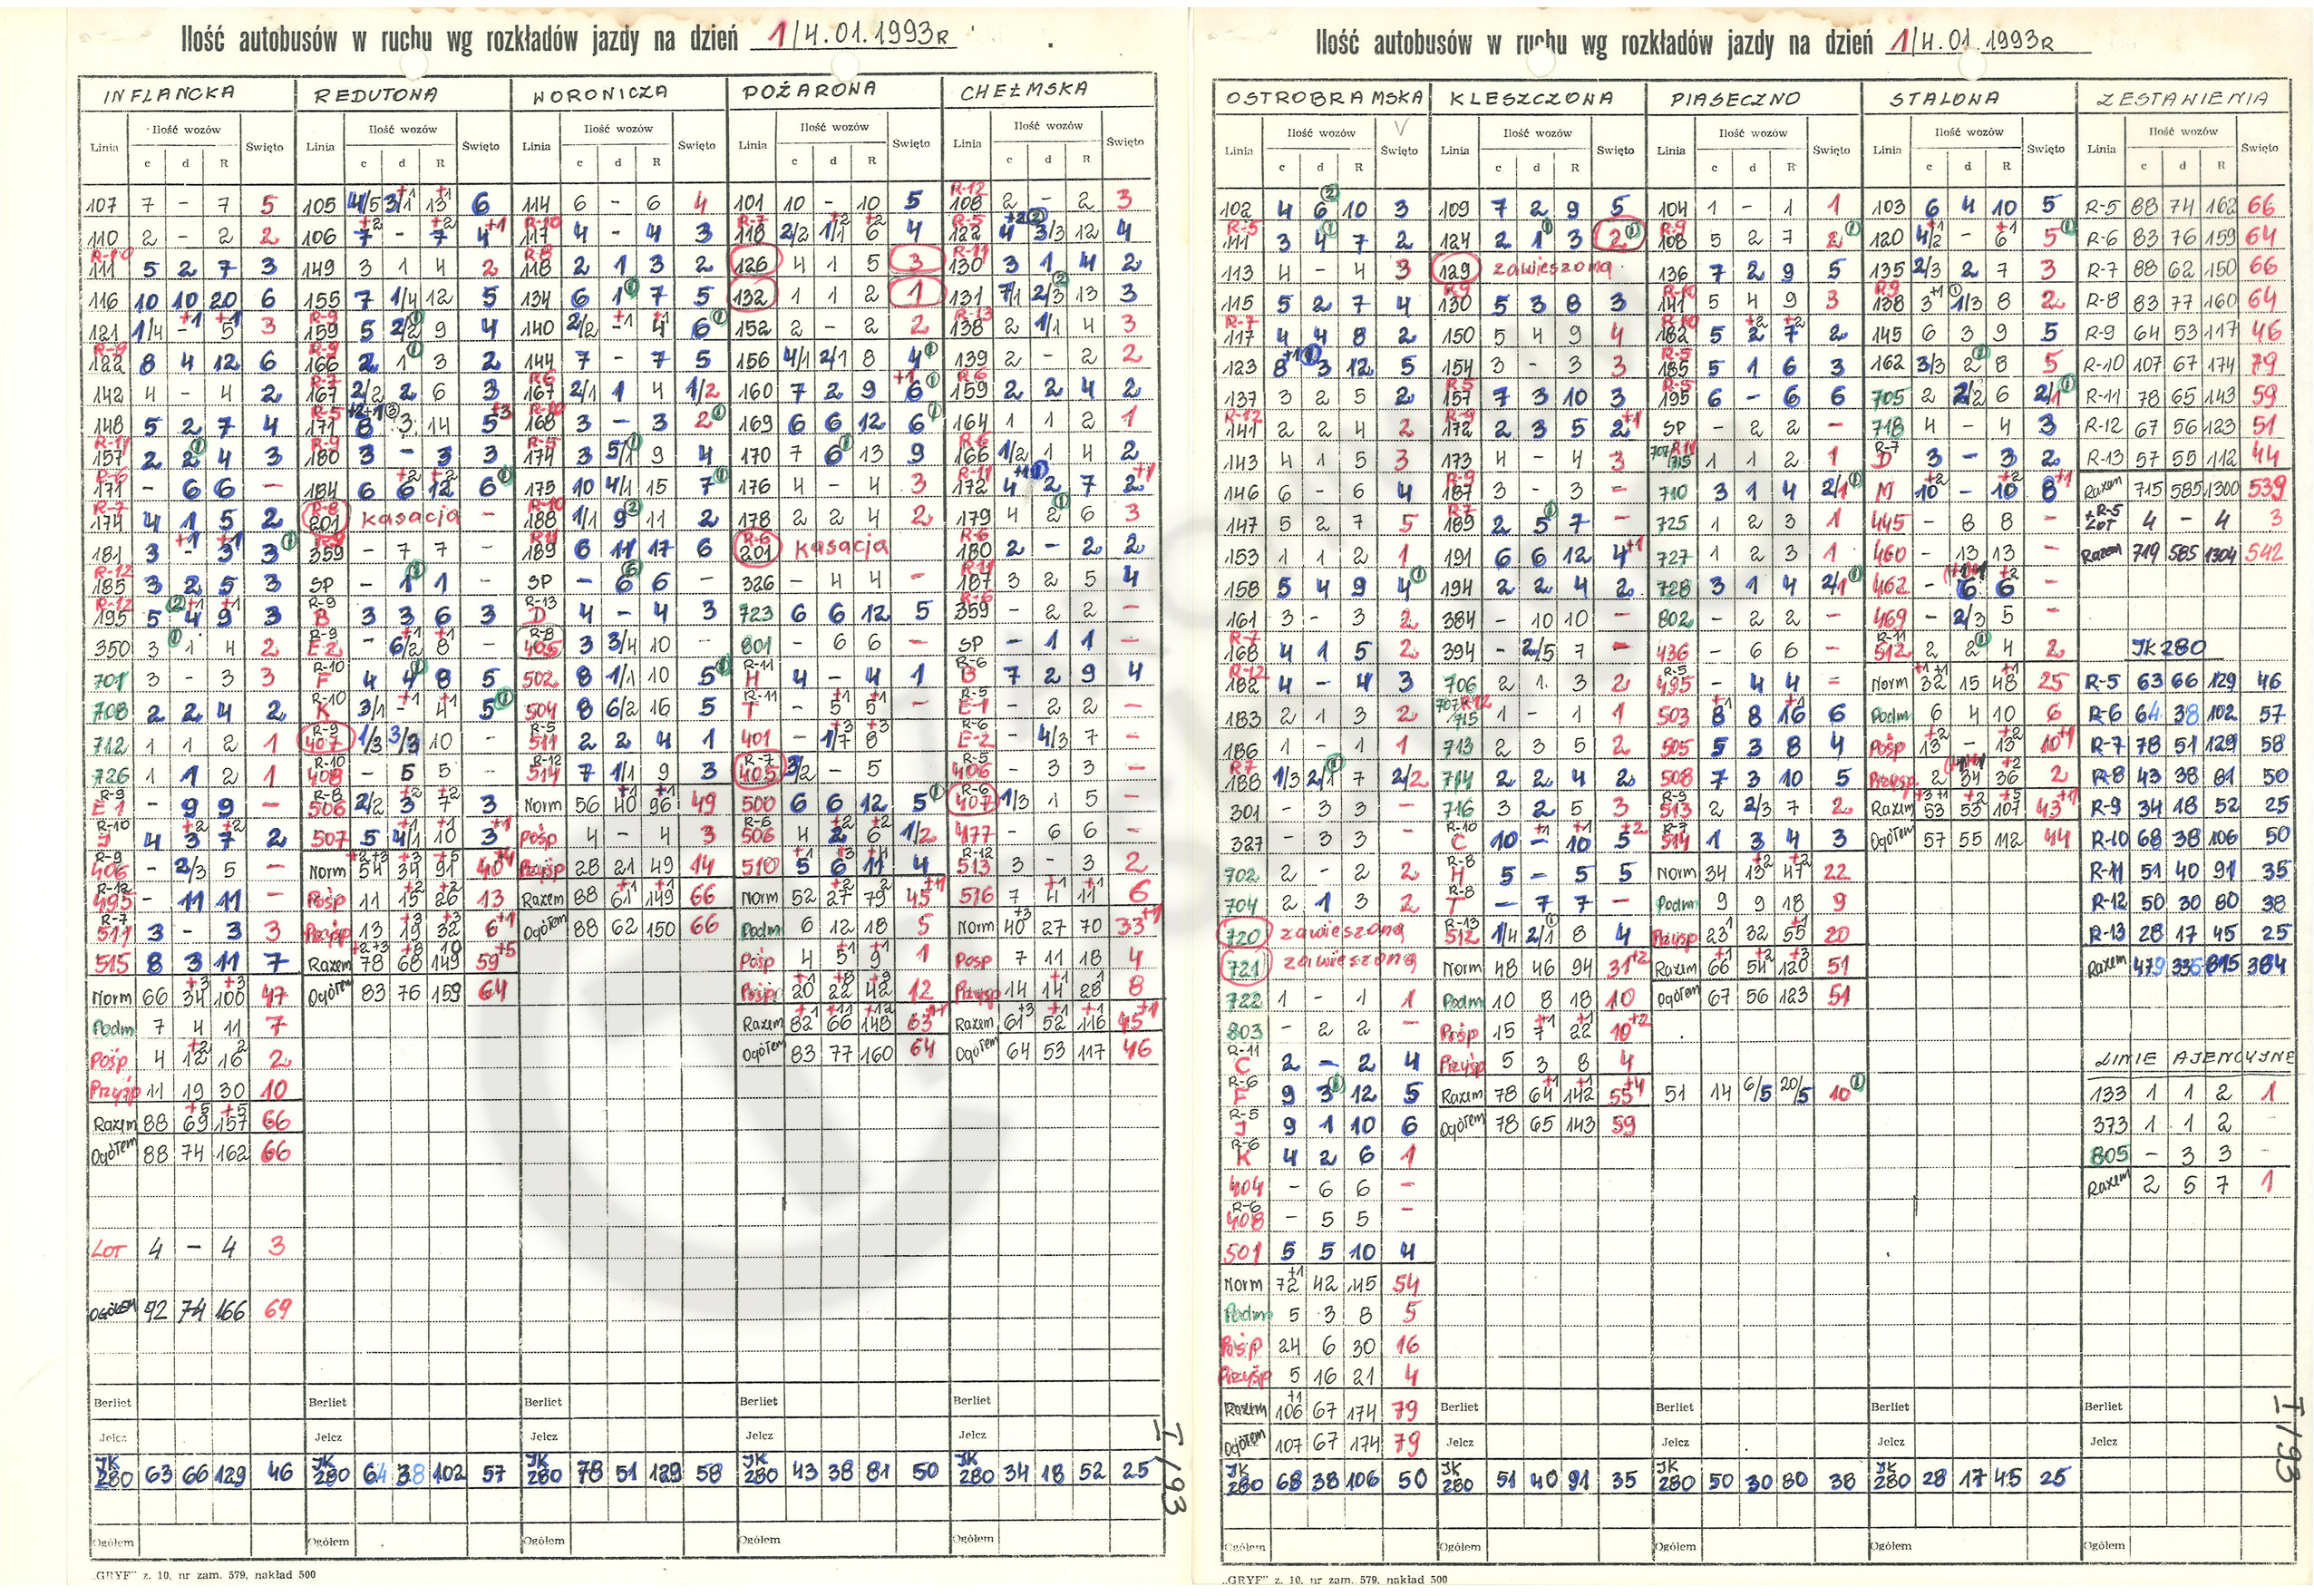 Ilość autobusów w ruchu wg rozkładów jazdy na dzień 1/4.01.1993R
INFLANCKA REDUTOWA WORONICZA POŻAROWA CHEŁMSKA
Linia Ilość wozów c d R Święto
INFLANCKA
107 7 - 7 5
110 2 - 2 2
R-10 111 5 2 7 3
116 10 10 20 6
121 1/4 - +1 5 +1 3
R-9 122 8 4 12 6
142 4 - 4 2
148 5 2 7 4
R-11 157 2 2 ① 4 3
R-6 171 - 6 6 -
R-7 174 4 1 5 2
181 3 - +1 3 +1 3 ①
R-12 185 3 2 5 3
R-12 195 5 4 ② +1 9 +1 3
350 3 1 ① 4 2
701 3 - 3 3
708 2 2 4 2
712 1 1 2 1
726 1 1 2 1
R-9 E-1 - 9 9 -
R-10 J 4 3 +2 7 +2 2
R-9 406 - 2/3 5 -
R-12 495 - 11 11 -
R-7 511 3 - 3 3
515 8 3 11 7
Norm 66 34 +3 100 +3 47
Podm 7 4 11 7
Pośp 4 12 +2 16 2 2
Przyśp 11 19 30 10
Razem 88 69 +5 157 +5 66
Ogółem 88 74 162 66
LOT 4 - 4 3
OGÓŁEM 92 74 166 69
Berliet
Jelcz
JK 280 63 66 129 46
Ogółem
REDUTOWA
105 4/5 3/1 +1 13 +1 6
106 7 +2 - 7 +2 4 +1
149 3 1 4 2
155 7 1/4 12 5
R-9 159 5 2/2 ① 9 4
R-9 166 2 1 ① 3 2
R-7 167 2/2 2 6 3
R-5 171 8 +2+1 3 ③ 14 5 +3
R-9 180 3 - 3 3
184 6 6 +2 12 +2 6 ①
R-8 201 kasacja -
R-9 359 - 7 7 -
SP - 1 1 -
R-9 B 3 3 6 3
R-9 E-2 - 6/2 +1 8 +1 -
R-10 F 4 4 ① 8 5
R-10 K 3/1 - +1 4 +1 5 ①
R-9 407 1/3 3/3 10 -
R-10 408 - 5 5 -
R-8 506 2/2 3 +2 7 +2 3
507 5 4/1 +1 10 +1 3 +1
Norm 54 +2+3 34 +3 91 +5 40 +4
Pośp 11 15 +2 26 +2 13
Przyśp 13 19 +3 32 +3 6 +1
Razem 78 +2+3 68 +8 149 10 59 +5
Ogółem 83 76 159 64
Berliet
Jelcz
JK 280 64 38 102 57
Ogółem
WORONICZA
114 6 - 6 4
R-10 117 4 - 4 3
R-8 118 2 1 3 2
134 6 1 ① 7 5
140 2/2 - +1 4 +1 6 ①
144 7 - 7 5
R6 167 2/1 1 4 1/2
R-10 168 3 - 3 2 ①
R-5 174 3 5/1 ① 9 4
175 10 4/1 15 7 ①
R-10 188 1/1 9 ② 11 2
R11 189 6 11 17 6
SP - 6 6 -
R-13 D 4 - 4 3
R-8 405 3 3/4 10 -
502 8 1/1 10 5 ①
504 8 6/2 16 5
R-5 511 2 2 4 1
R-12 514 7 1/1 9 3
Norm 56 40 +1 96 +1 49
Pośp 4 - 4 3
Przyśp 28 21 49 14
Razem 88 61 +1 149 +1 66
Ogółem 88 62 150 66
Berliet
Jelcz
JK 280 78 51 129 58
Ogółem
POŻAROWA
101 10 - 10 5
R-7 118 2/2 1/1 +2 6 +2 4
126 4 1 5 3
132 1 1 2 1
152 2 - 2 2
156 4/1 2/1 8 4 ①
160 7 2 9 6 +1 ①
169 6 6 12 6 ①
170 7 6 ① 13 9
176 4 - 4 3
178 2 2 4 2
R-6 201 kasacja
326 - 4 4 -
723 6 6 12 5
801 - 6 6 -
R-11 H 4 - 4 1
R-11 T - 5 +1 5 +1 -
401 - 1/7 +3 8 +3 -
R-7 405 3/2 - 5 -
500 6 6 12 5 ①
R-6 506 4 2 +2 6 +2 1/2
510 5 +1 6 +3 11 +4 4
Norm 52 27 +2 79 2 45 +1
Podm 6 12 18 5
Pośp 4 5 +1 9 +1 1
Pośpi 20 +1 22 +8 42 +9 12
Razem 82 +1 66 +11 148 +12 63 +1
Ogółem 83 77 160 64
Berliet
Jelcz
JK 280 43 38 81 50
Ogółem
CHEŁMSKA
R-12 108 2 - 2 3
R-5 122 4 +2 ② 3/3 12 4
R-11 130 3 1 4 2
131 7/1 2/3 ② 13 3
R-13 138 2 1/1 4 3
139 2 - 2 2
R 6 159 2 2 4 2
164 1 1 2 1
R-6 166 1/2 1 4 2
R-11 172 4 2 7 2 +1
179 4 2 ① 6 3
R-6 180 2 - 2 2
R11 187 3 2 5 4
R-6 359 - 2 2 -
SP - 1 1 -
R-6 B 7 2 9 4
R-5 E-1 - 2 2 -
R-6 E-2 - 4/3 7 -
R-5 406 - 3 3 -
R-6 407 1/3 1 5 -
477 - 6 6 -
R-12 513 3 - 3 2
516 7 4 +1 11 +1 6
Norm 40 +3 27 70 33 +1
Pośp 7 11 18 4
Przyśp 14 14 +1 28 1 8
Razem 61 +3 52 +1 116 +1 45 +1
Ogółem 64 53 117 46
Berliet
Jelcz
JK 280 34 18 52 25
Ogółem
I/93
„GRYF" z. 10, nr zam. 579, nakład 500
Ilość autobusów w ruchu wg rozkładów jazdy na dzień 1/4.01.1993R
OSTROBRAMSKA KLESZCZOWA PIASECZNO STALOWA ZESTAWIENIA
Linia Ilość wozów c d R Święto
OSTROBRAMSKA
102 4 6 ② 10 3
R-5 111 3 4 ① 7 2
113 4 - 4 3
115 5 2 7 4
R-7 117 4 4 8 2
123 8 +1 ① 3 12 5
137 3 2 5 2
R-12 141 2 2 4 2
143 4 1 5 3
146 6 - 6 4
147 5 2 7 5
153 1 1 2 1
158 5 4 9 4 ①
161 3 - 3 2
R-7 168 4 1 5 2
R-12 182 4 - 4 3
183 2 1 3 2
186 1 - 1 1
R7 188 1/3 2/1 ① 7 2/2
301 - 3 3 -
327 - 3 3 -
702 2 - 2 2
704 2 1 3 2
720 zawieszona
721 zawieszona
722 1 - 1 1
803 - 2 2 -
R-11 C 2 - 2 4
R-6 F 9 3 12 5
R-5 J 9 1 10 6
R-6 K 4 2 6 1
404 - 6 6 -
R-6 408 - 5 5 -
501 5 5 10 4
Norm 72 +1 42 115 54
Podm 5 3 8 5
Pośp 24 6 30 16
Przyśp 5 16 21 4
Razem 106 +1 67 174 79
Ogółem 107 67 174 79
JK 280 68 38 106 50
KLESZCZOWA
109 7 2 9 5
124 2 1 ① 3 2 ①
129 zawieszona
R9 130 5 3 8 3
150 5 4 9 4
154 3 - 3 3
R5 157 7 3 10 3
R-9 172 2 3 5 2 +1
173 4 - 4 3
R-9 187 3 - 3 -
R7 189 2 5 7 -
191 6 6 12 4 +1
194 2 2 4 2
384 - 10 10 -
394 - 2/5 7 -
706 2 1 3 2
707 R12 /715 1 - 1 1
713 2 3 5 2
714 2 2 4 2
716 3 2 5 3
R-10 C 10 - +1 10 +1 5 +2
R-8 H 5 - 5 5
R-8 T - 7 7 -
R-13 512 1/4 2/1 ① 8 4
Norm 48 46 94 31 +2
Podm 10 8 18 10
Pośp 15 7 +1 22 +1 10 +2
Przyśp 5 3 8 4
Razem 78 64 +1 142 +1 55 +4
Ogółem 78 65 143 59
Berliet
Jelcz
JK 280 51 40 91 35
Ogółem
PIASECZNO
104 1 - 1 1
R-9 108 5 2 7 2 ①
136 7 2 9 5
R-10 141 5 4 9 3
R-10 182 5 2 +2 7 +2 2
R-5 185 5 1 6 3
R-5 195 6 - 6 6
SP - 2 2 -
707 R11 /715 1 1 2 1
710 3 1 4 2/1 ①
725 1 2 3 1
727 1 2 3 1
728 3 1 4 2/1 ①
802 - 2 2 -
436 - 6 6 -
R-5 495 - 4 4 -
503 8 +1 8 16 +1 6
505 5 3 8 4
508 7 3 10 5
R-9 513 2 2/3 7 2
R-7 514 1 3 4 3
Norm 34 13 +2 47 +2 22
Podm 9 9 18 9
Przyśp 23 1 32 55 +1 20
Razem 66 +1 54 +2 120 +3 51
Ogółem 67 56 123 51
51 14 6/5 20/5 10 ①
Berliet
Jelcz
JK 280 50 30 80 38
Ogółem
STALOWA
103 6 4 10 5
120 4/2 - 6 ① 5 ①
135 2/3 2 7 3
R9 138 3 +1 1/3 ① 8 2
145 6 3 9 5
162 3/3 2 ② 8 5
705 2 2/2 6 2/1 ①
718 4 - 4 3
R-7 D 3 - 3 2
M 10 +2 - 10 +2 8 +1
445 - 8 8 -
460 - 13 13 -
462 - 6 6 +2 -
469 - 2/3 5 -
R-11 512 2 2 ① 4 2
Norm 32 +1 +1 15 48 +1 25
Podm 6 4 10 6
Pośp 13 +2 - 13 +2 10 +1
Przyśp 2 34 36 +2 2
Razem 53 +3 +1 53 +2 107 +5 43 +1
Ogółem 57 55 112 44
Berliet
Jelcz
JK 280 28 17 45 25
Ogółem
ZESTAWIENIA
R-5 88 74 162 66
R-6 83 76 159 64
R-7 88 62 150 66
R-8 83 77 160 64
R-9 64 53 117 46
R-10 107 67 174 79
R-11 78 65 143 59
R-12 67 56 123 51
R-13 57 55 112 44
Razem 715 585 1300 539
+R-5 LOT 4 - 4 3
Razem 719 585 1304 542
JK 280
R-5 63 66 129 46
R-6 64 38 102 57
R-7 78 51 129 58
R-8 43 38 81 50
R-9 34 18 52 25
R-10 68 38 106 50
R-11 51 40 91 35
R-12 50 30 80 38
R-13 28 17 45 25
Razem 479 336 815 384
LINIE AJENCYJNE
133 1 1 2 1
373 1 1 2 -
805 - 3 3 -
Razem 2 5 7 1
Berliet
Jelcz
Ogółem
I/93
„GRYF" z. 10, nr zam. 579, nakład 500